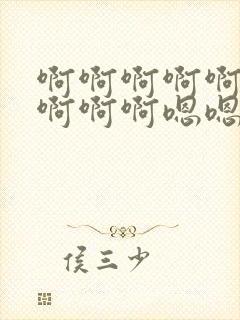 啊啊啊啊啊
啊啊啊嗯嗯
侯三少